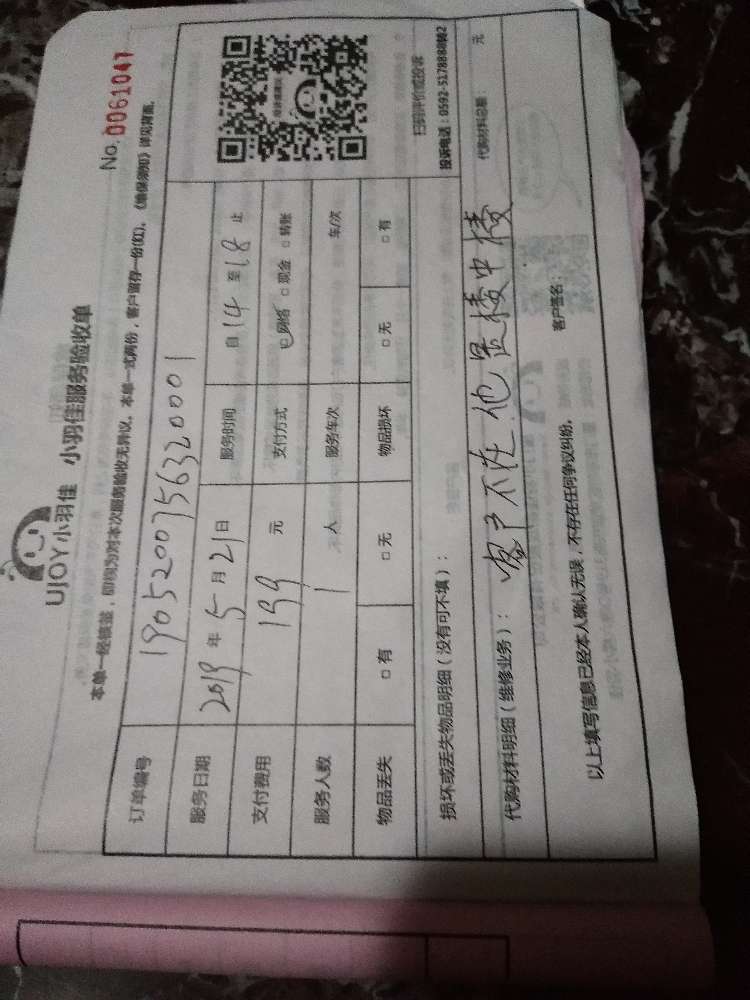 UJOY小羽佳 小羽佳服务验收单
No. 0061047
本单一经签署，即视为对本次服务验收无异议。本单一式两份，客户留存一份(红)。《维保须知》详见背面。
订单编号 1905200756320001
服务日期 2019 年 5 月 21 日 服务时间 自 14 至 18 止
支付费用 199 元 支付方式 ☑网络 □现金 □转账
服务人数 1 人 服务车次 车/次
物品丢失 □有 □无 物品损坏 □无 □有
扫码评价或投诉
投诉电话：0592-5178888转2
损坏或丢失物品明细（没有可不填）：
代购材料明细（维修业务）： 代购材料总额： 元
客户不在 他是楼中楼
以上填写信息已经本人确认无误，不存在任何争议纠纷。 客户签名：